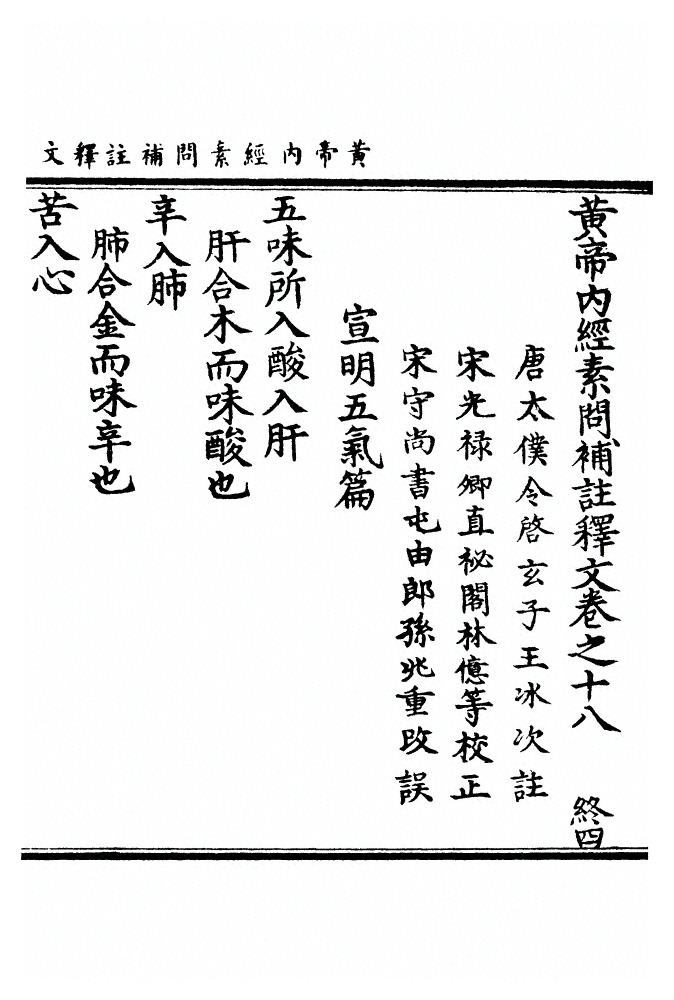 黃帝內經素問補註釋文
黃帝內經素問補註釋文卷之十八 終四
唐太僕令啓玄子王冰次註
宋光祿卿直祕閣林億等校正
宋守尚書屯由郎孫兆重改誤
宣明五氣篇
五味所入酸入肝
肝合木而味酸也
辛入肺
肺合金而味辛也
苦入心